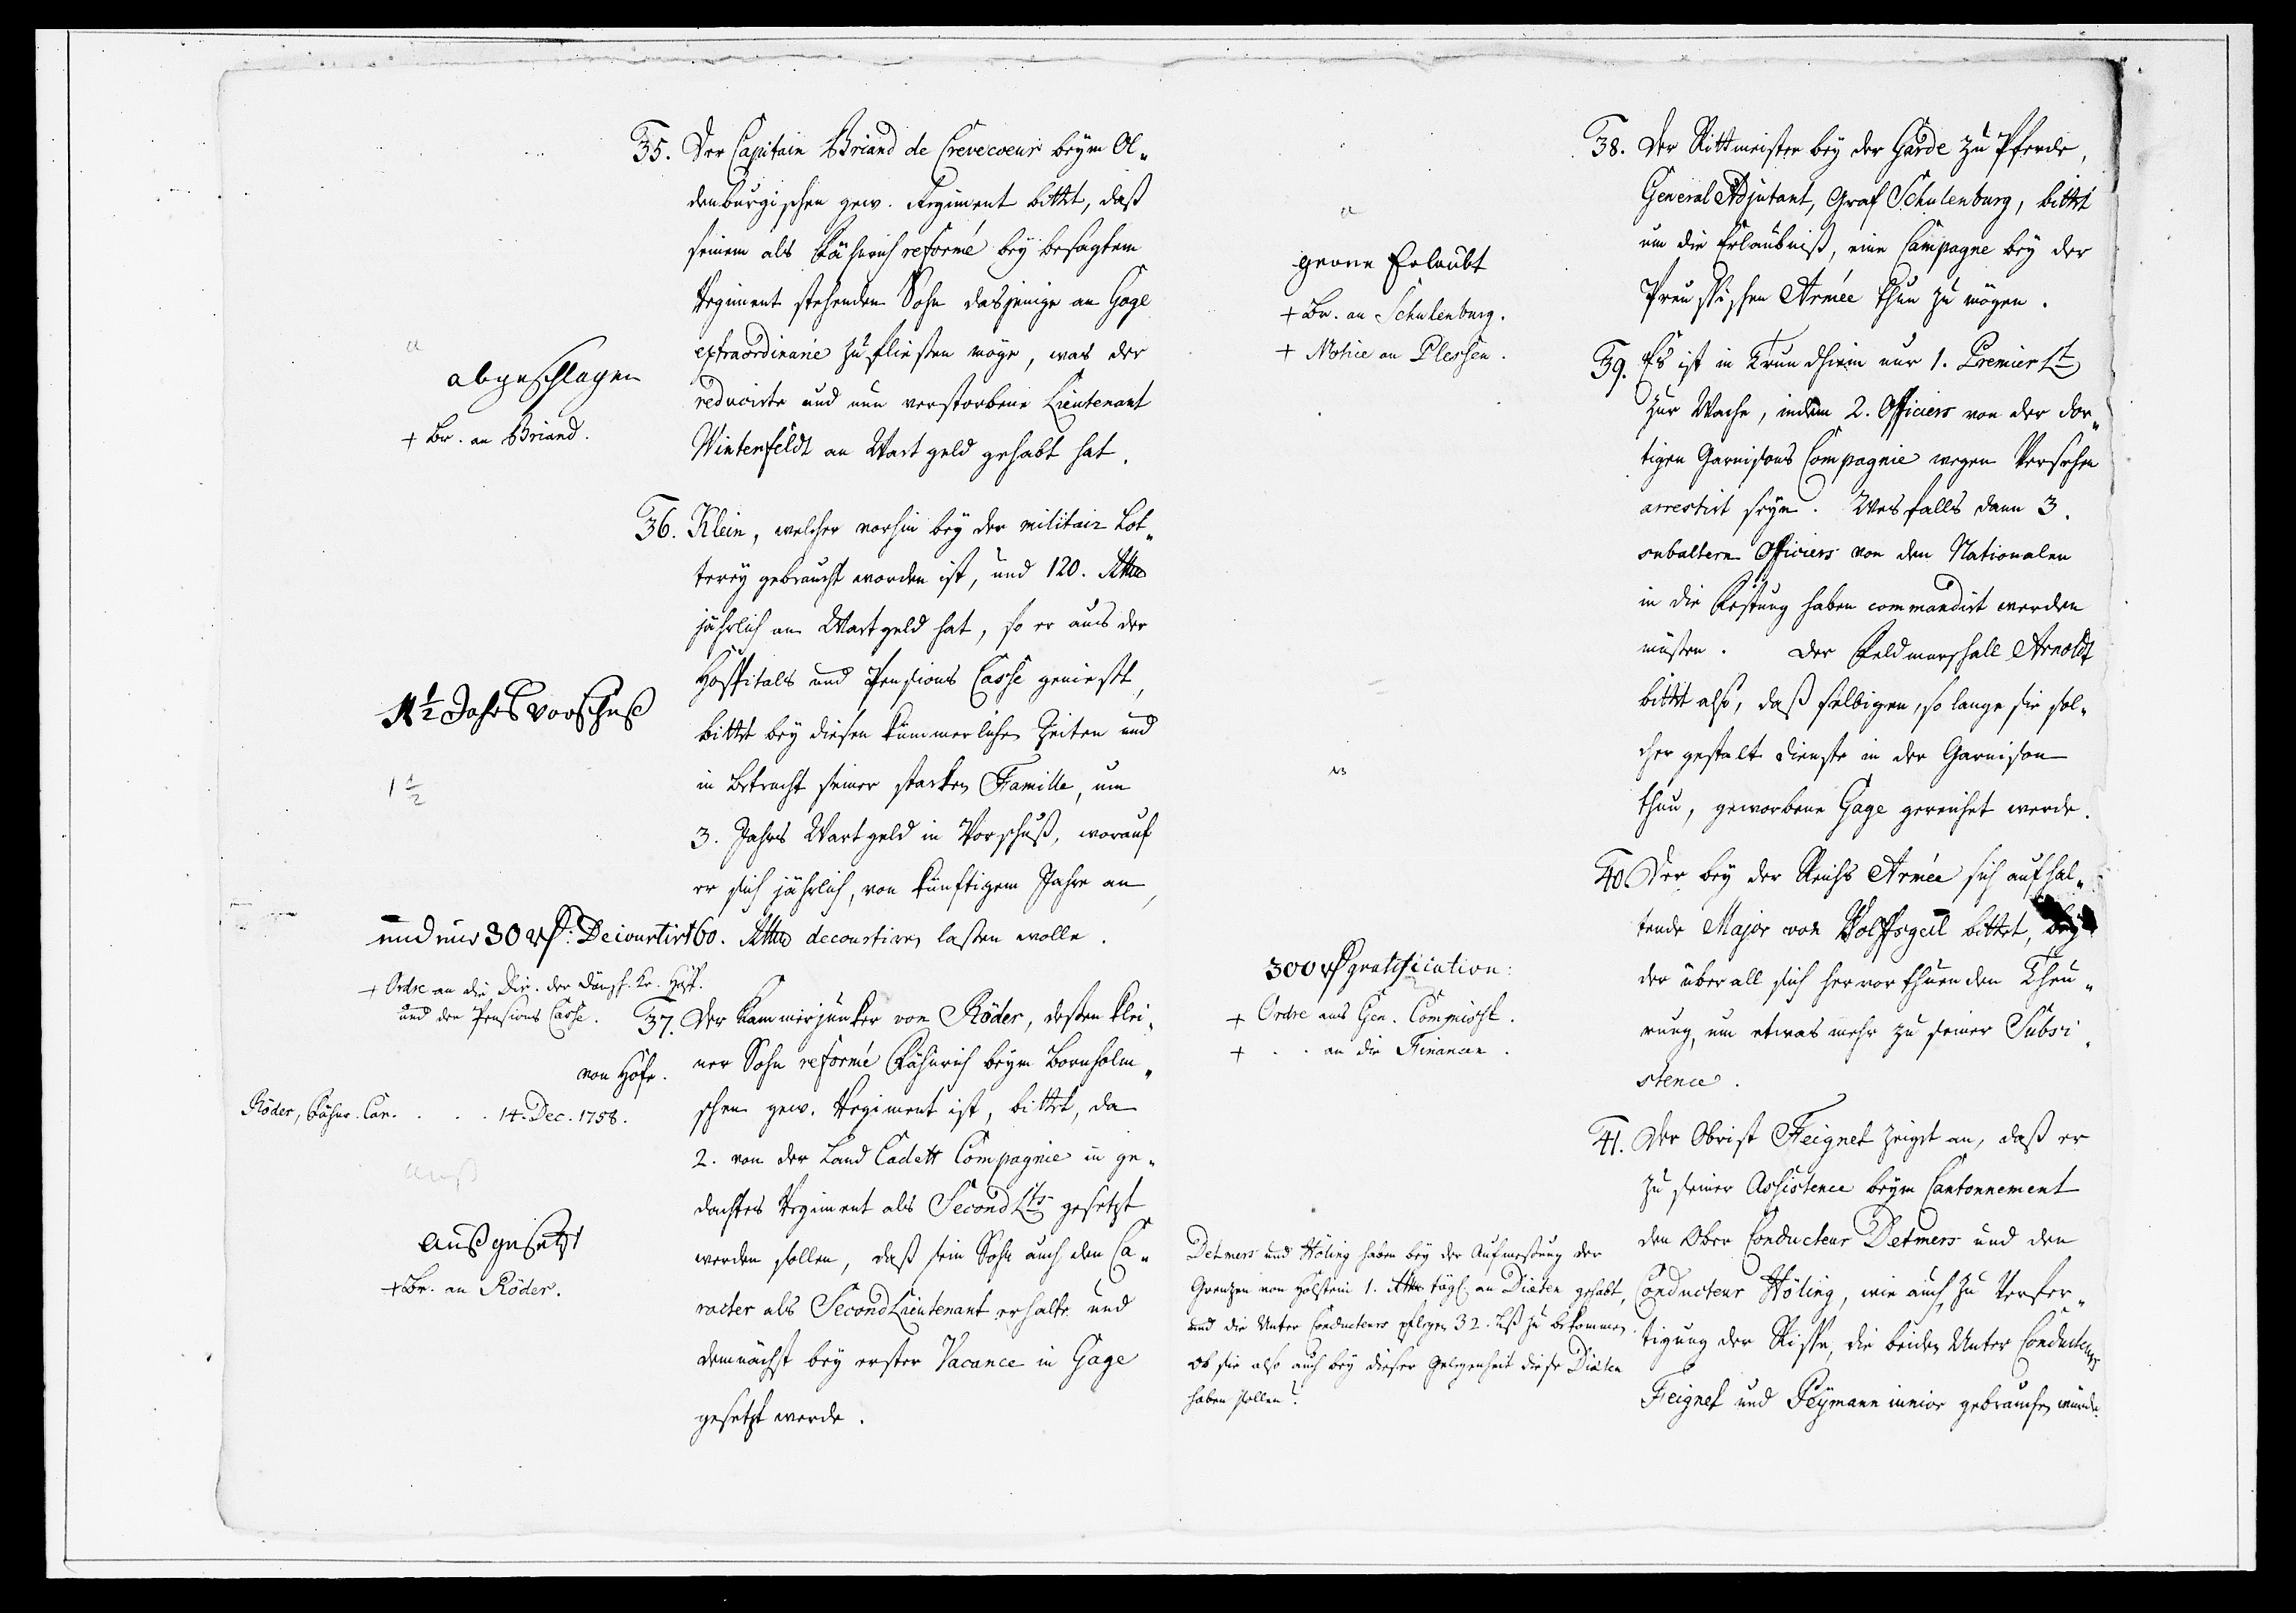 35. Der Capitain Briand de Crevecoeur beym Ol-
denburgischen gew. Regiment bittet, daß
seinem als Fähnrich reformé bey besagtem
Regiment stehenden Sohn dasjenige an Gage
extraordinarie zufließen möge, was der
reducirte und nun verstorbene Lieutenant
Winterfeldt an Wartgeld gehabt hat.
abgeschlagen
+ Br. an Briand.
36. Klein, welcher vorhin bey der militair Lot-
terey gebraucht worden ist, und 120. Rthlr
jährlich an Wartgeld hat, so er aus der
Hospitals und Pensions Casse genießt,
bittet bey diesen kümmerlichen Zeiten und
in Betracht seiner starken Famille, um
3. Jahrs Wartgeld in Vorschuß, worauf
er sich jährlich, von künftigem Jahre an,
60. Rthlr decourtiren laßen wolle.
1 1/2 Jahrs vorschuß
1 1/2
und nur 30 rß: Decourtirt
+ Ordre an die Dir. der Dänsch. Kr. Hosp.
und der Pensions Casse.
37. Der Kammerjunker von Röder, deßen klei-
ner Sohn reformé Fähnrich beym Bornholm-
schen gew. Regiment ist, bittet, da
2. von der Land Cadett Compagnie in ge-
dachtes Regiment als Second Lts gesetzt
werden sollen, daß sein Sohn auch den Ca-
racter als Second Lieutenant erhalte und
demnächst bey erster Vacance in Gage
gesetzt werde.
von Hofe.
Röder, Fähnr. Car. . . . 14. Dec. 1758.
auß
außgesetzt
+ Br. an Röder.
38. Der Rittmeister bey der Garde zu Pferde,
General Adjutant, Graf Schulenburg, bittet
um die Erlaubniß, eine Campagne bey der
Preußischen Armée thun zu mögen.
a
gerne Erlaubt
+ Br. an Schulenburg.
+ Notice an Plessen.
39. Es ist in Trundhiem nur 1. Premier Lt
zur Wache, indem 2. Officiers von der dor-
tigen Garnisons Compagnie wegen Versehen
arrestirt seyn. Wesfalls dann 3.
subaltern Officiers von den Nationalen
in die Festung haben commandirt werden
müßen. Der Feldmarschall Arnoldt
bittet also, daß selbigen, so lange sie sol-
cher gestalt Dienste in der Garnison
thun, geworbene Gage gereichet werde.
40. Der bey der Reichs Armée sich aufhal-
tende Major von Wolffsgeil bittet, bey
der überall sich hervorthuenden Theu-
rung, um etwas mehr zu seiner Subsi-
stence.
300 rß gratification:
+ Ordre ans Gen. Commisst.
+ . . an die Financen.
41. Der Obrist Feignet zeiget an, daß er
zu seiner Assistence beym Cantonnement
den Ober Conducteur Detmers und den
Conducteur Höling, wie auch zu Verfer-
tigung der Riße, die beiden Unter Conducteurs
Feignet und Peymann iunior gebrauchen würde.
Detmers und Höling haben bey der Aufmeßung der
Grenzen von Holstein 1. Rthlr tägl. an Diæten gehabt,
und die Unter Conducteurs pflegen 32. Lß zu bekommen.
Ob sie also auch bey dieser Gelegenheit diese Diæten
haben sollen?